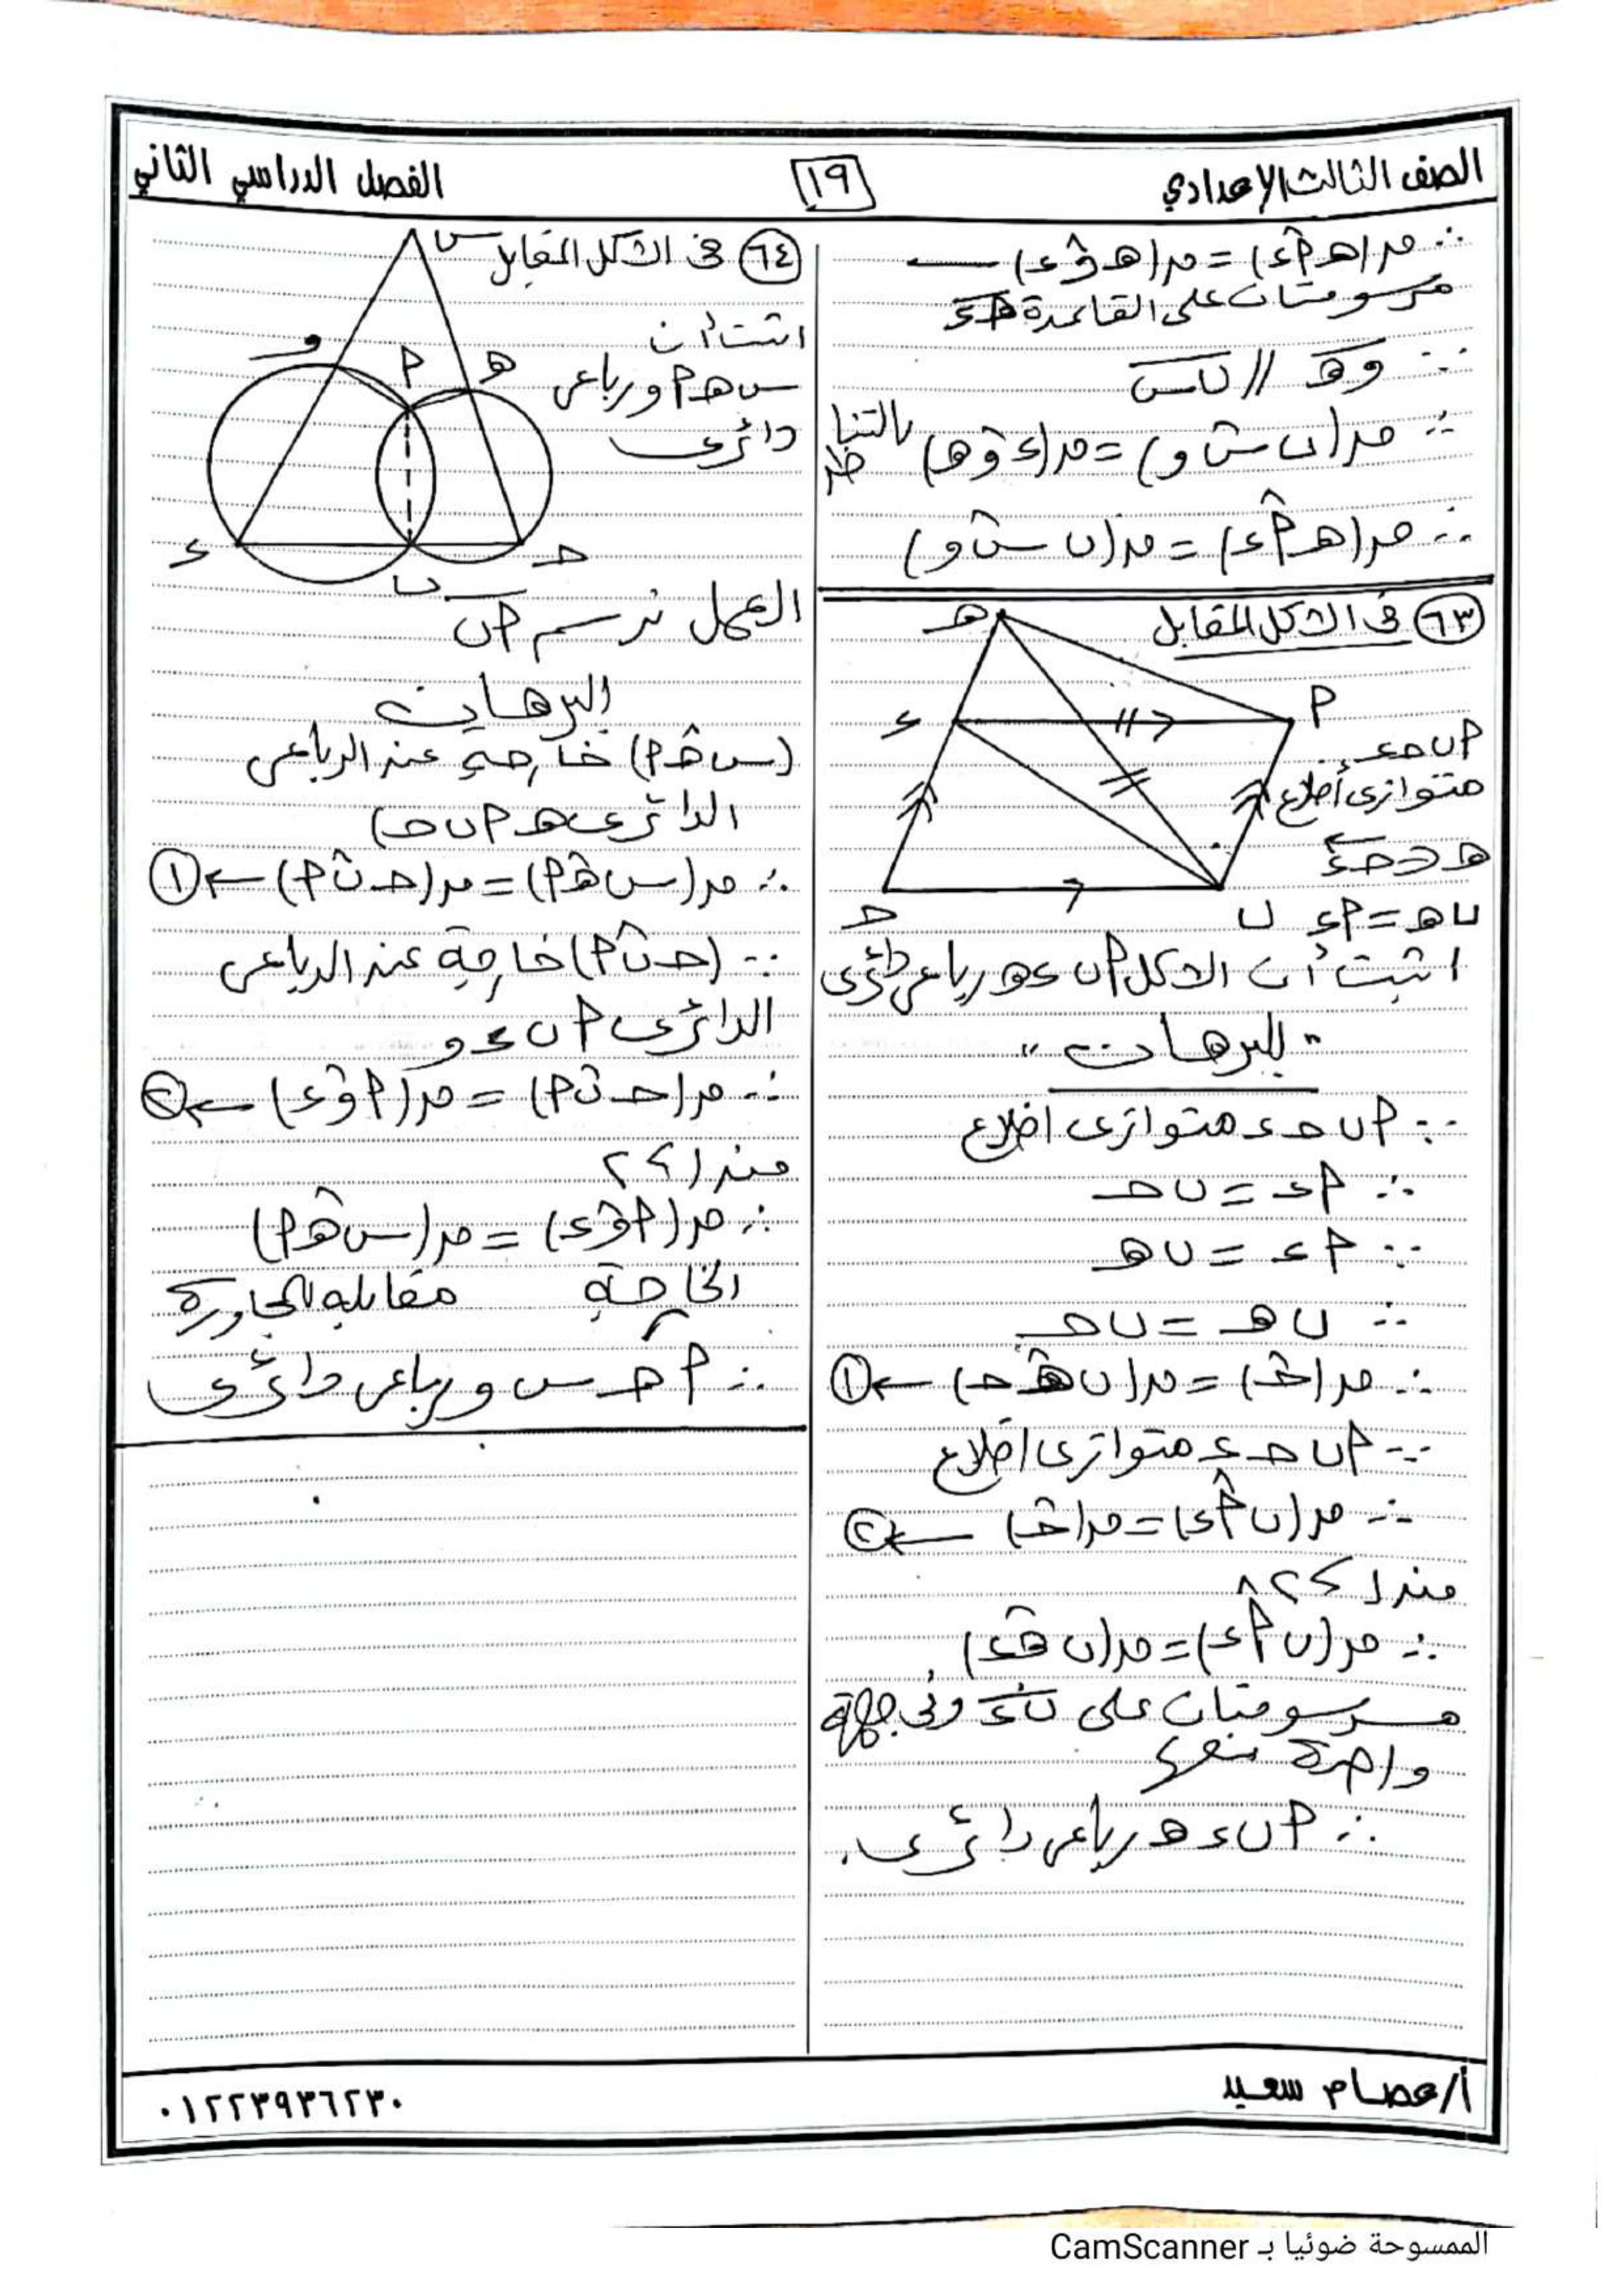 الصف الثالث الإعدادي
١٩
الفصل الدراسي الثاني
∴ ق(هـ أ ء) = ق(هـ و ء) ←
مرسومتان على القاعدة هـ ء
∵ و هـ // ب س
∴ ق(ب س و) = ق(ء و هـ) بالتناظر
∴ ق(هـ أ ء) = ق(ب س و)
٦٣ فى الشكل المقابل
هـ
أ
ء
حـ
ب
أ ب حـ ء
متوازى أضلاع
هـ ∈ حـ ء
ب هـ = أ ء
اثبت أن الشكل أ ب ء هـ رباعى دائرى
"البرهان"
∵ أ ب حـ ء متوازى اضلاع
∴ أ ء = ب حـ
∵ أ ء = ب هـ
∴ ب هـ = ب حـ
∴ ق(حـ) = ق(ب هـ حـ) ← ١
∵ أ ب حـ ء متوازى اضلاع
∴ ق(ب أ ء) = ق(حـ) ← ٢
من ١، ٢
∴ ق(ب أ ء) = ق(ب هـ ء)
مرسومتان على ب ء وفى جهة
واحدة منها
∴ أ ب ء هـ رباعى دائرى.
٦٤ فى الشكل المقابل
اثبت أن
س هـ أ و رباعى
دائرى
س
و
أ
هـ
ء
ب
حـ
العمل نرسم أ ب
البرهان
(س هـ أ) خارجة عن الرباعى
الدائرى هـ أ ب حـ)
∴ ق(س هـ أ) = ق(حـ ب أ) ← ١
∵ (حـ ب أ) خارجة عن الرباعى
الدائرى أ ب ء و
∴ ق(حـ ب أ) = ق(أ و ء) ← ٢
من ١، ٢
∴ ق(أ و ء) = ق(س هـ أ)
الخارجة مقابله المجاورة
∴ أ هـ س و رباعى دائرى
أ/عصام سعيد
٠١٢٢٣٩٣٦٢٣٠
الممسوحة ضوئيا بـ CamScanner